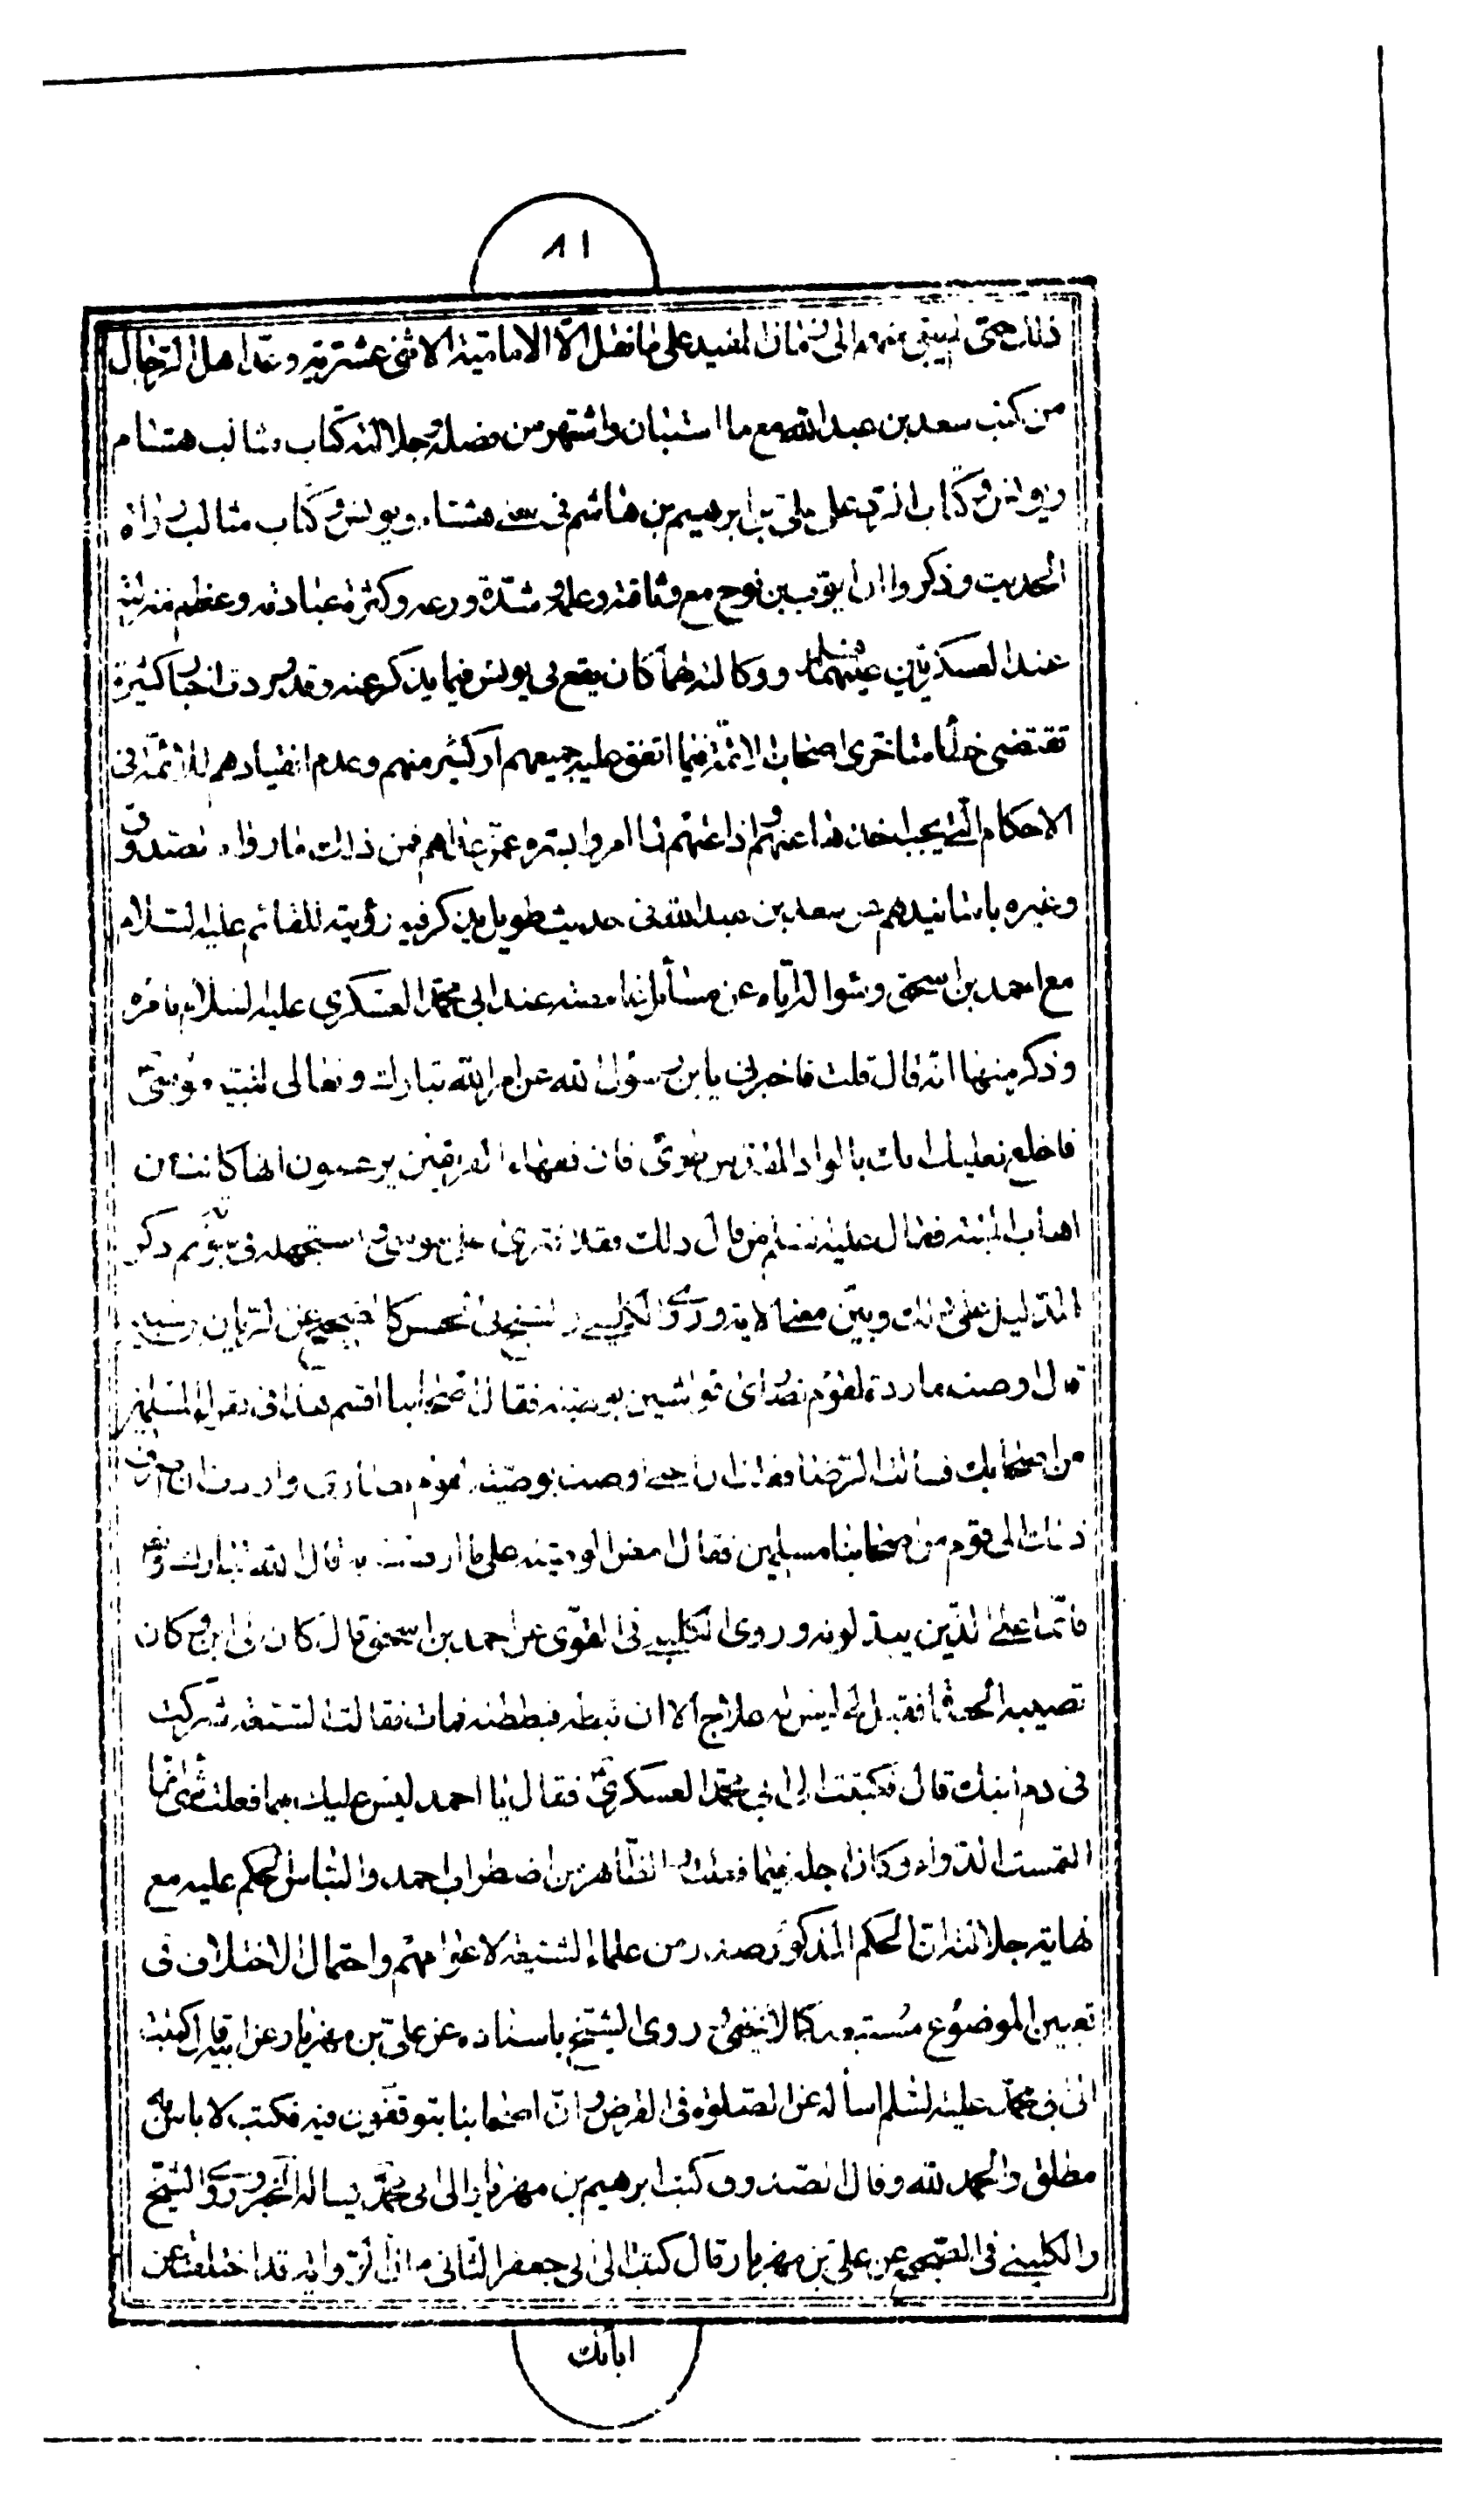 ٨١
ذلك حتى لم يبق منهم الى زمان المفيد على ما نقل الّا الاماميّة الاثنى عشريّة وعدّ اهل الرّجال
من كتب سعد بن عبد الله مع ما استبان واشتهر من فضله وجلالته كتاب مثالب هشام
ويونس وكتاب الرّد على علىّ بن ابرهيم بن هاشم فى معنى هشام ويونس وكتاب مثالب رواة
الحديث وذكروا ان ايّوب بن نوح مع وثاقته وعلمه وشدّة ورعه وكثرة عبادته وعظم منزلته
عند العسكريّين عليهما السلم ووكالته لهما كان يقع فى يونس فيما يذكر عنه وقد وردت اخبار كثيرة
تقتضى خطأ متاخرى اصحاب الائمّة فيما اتفق عليه جميعهم او كثير منهم وعدم انقيادهم للائمّة فى
الاحكام الّتى يجب اخذها عنهم واذاعتهم ما امروا بستره عمّن عداهم فمن ذلك ما رواه الصّدوق
وغيره باسانيدهم عن سعد بن عبد الله فى حديث طويل يذكر فيه رؤيته للقائم عليه السّلام
مع احمد بن اسحق وسؤاله ايّاه عن مسائل عند ابى محمّد العسكرى عليه السلام بامره
وذكر منها انّه قال قلت فاخبرنى يا بن رسول الله عن امر الله تبارك وتعالى لنبيّه موسى
فاخلع نعليك انك بالواد المقدّس طوى فان فقهاء الفريقين يزعمون انها كانت من
اهاب الميتة فقال عليه السّلم من قال ذلك فقد افترى على موسى واستجهله فى نبوّته ثم ذكر
الدّليل على ذلك وبيّن معنى الاية وروى الكلينى والشيخ فى الحسن كالصّحيح عن الريان بن شبيب
قال اوصت ماردة لقوم نصارى فراشين بوصيّة فقال اصحابنا اقسم هذا فى فقراء المسلمين
من اصحابك فسألت الرّضا فقلت ان اختى اوصت بوصيّة لقوم نصارى واردت ان اصرف
ذلك الى قوم من اصحابنا مسلمين فقال امض الوصيّة على ما اوصت به قال الله تبارك وتعالى
فانّما اثمه على الّذين يبدّلونه وروى الكلينى فى القوّى عن احمد بن اسحق قال كان لى ابن وكان
تصيبه الحصاة فقيل لى ليس له علاج الا ان تبطه فبططته فمات فقالت الشّيعة شركت
فى دم ابنك قال فكتبت الى ابى محمّد العسكرى فقال يا احمد ليس عليك مما فعلت شئ انّما
التمست الدّواء وكان اجله فيما فعلت والظّاهر من اضطراب احمد والتباس الحكم عليه مع
نهاية جلالته انّ الحكم المذكور صدر من علماء الشيعة لا عوامهم واحتمال الاختلاف فى
تعيين الموضوع مستبعد كما لا يخفى وروى الشيخ باسناده عن علىّ بن مهزيار عن قال كتبت
الى ابى محمّد عليه السّلم اسأله عن الصّلوة فى القرمز وانّ اصحابنا يتوقفون فيه فكتب لا باس به
مطلق والحمد لله وقال الصّدوق كتب ابرهيم بن مهزيار الى ابى محمّد يساله الخ وروى الشيخ
والكلينى فى الصّحيح عن علىّ بن مهزيار قال كتبت الى ابى جعفر الثّانى ان الرّواية قد اختلفت عن
ابائك